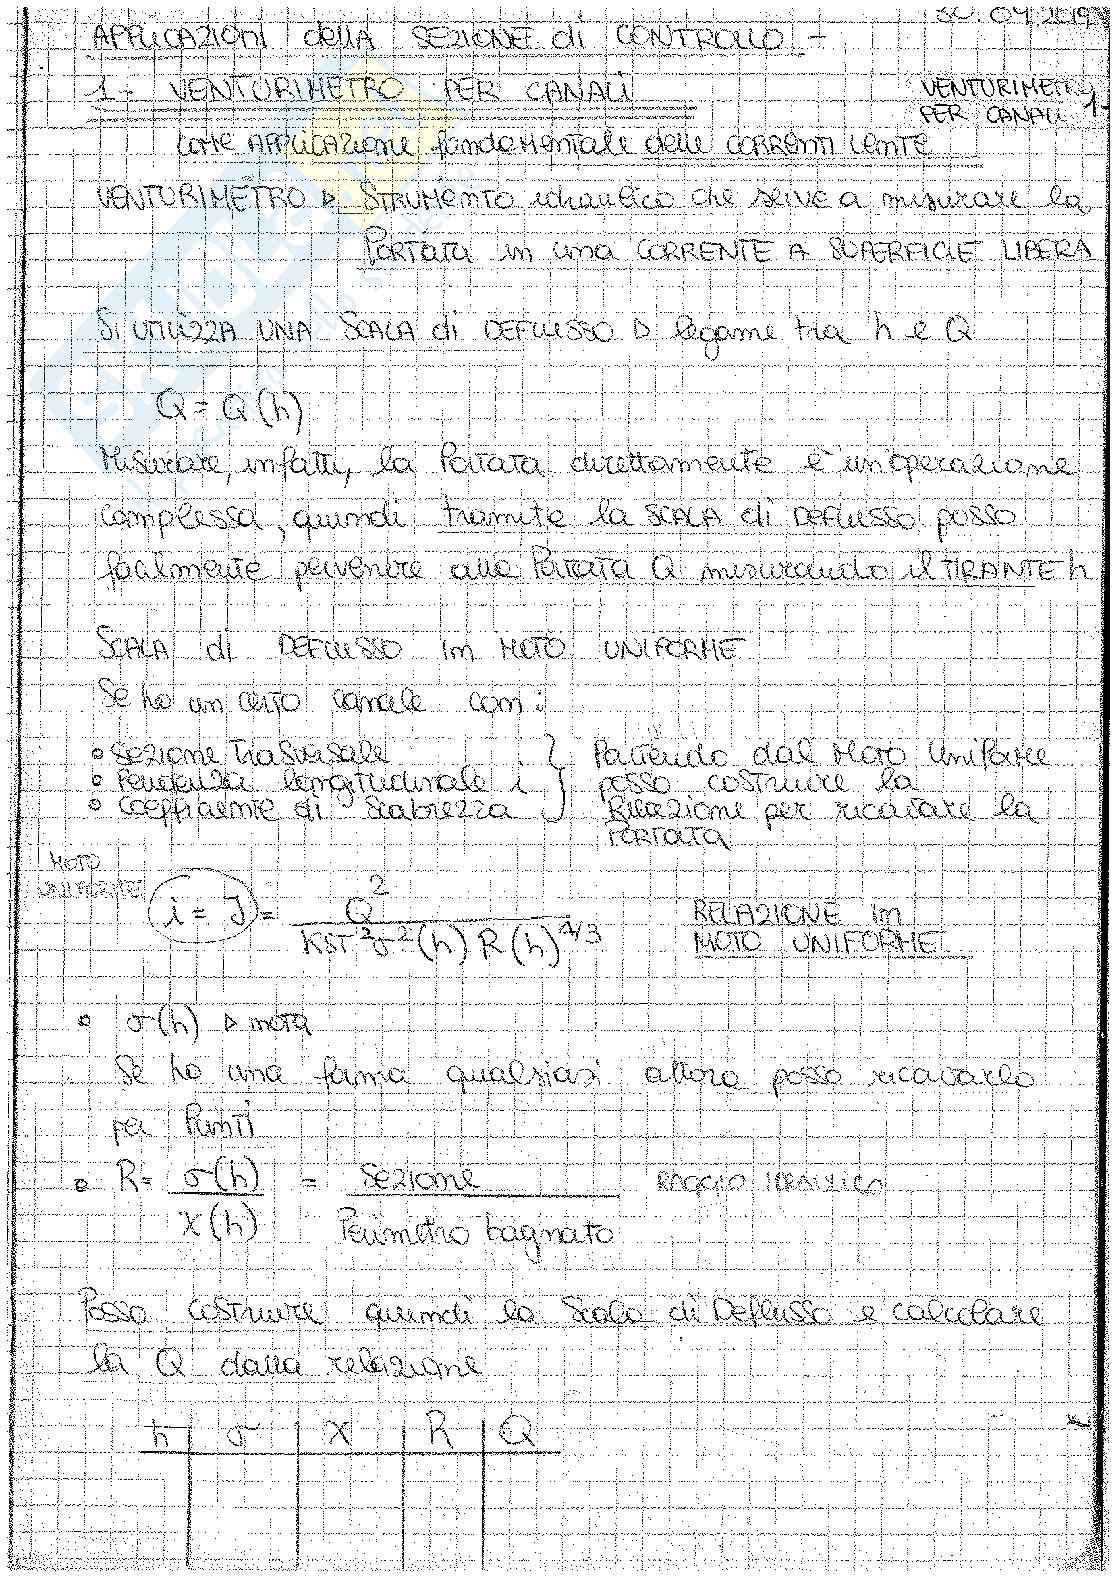 04.2019
APPLICAZIONI della SEZIONE di CONTROLLO -
1- VENTURIMETRO PER CANALI
VENTURIMETRO
PER CANALI 1-
COME APPLICAZIONE fondamentale delle CORRENTI LENTE
VENTURIMETRO ▷ STRUMENTO idraulico che serve a misurare la
PORTATA in una CORRENTE A SUPERFICIE LIBERA
SI UTILIZZA UNA SCALA di DEFLUSSO ▷ legame tra h e Q
Q = Q(h)
Misurare, infatti, la Portata direttamente è un'operazione
complessa, quindi tramite la SCALA di DEFLUSSO posso
facilmente pervenire alla Portata Q misurando il TIRANTE h
SCALA di DEFLUSSO in MOTO UNIFORME
Se ho un certo canale con:
• Sezione Trasversale
• Pendenza longitudinale i
• Coefficiente di Scabrezza
} Partendo dal Moto Uniforme
posso costruire la
Relazione per ricavare la
PORTATA
MOTO
UNIFORME
i = J = Q² / KST² σ²(h) R(h)^4/3
RELAZIONE in
MOTO UNIFORME
• σ(h) ▷ nota
Se ho una forma qualsiasi allora posso ricavarlo
per Punti
• R = σ(h) / χ(h) = Sezione / Perimetro bagnato RAGGIO IDRAULICO
Posso costruire quindi la Scala di Deflusso e calcolare
la Q dalla relazione
h | σ | χ | R | Q